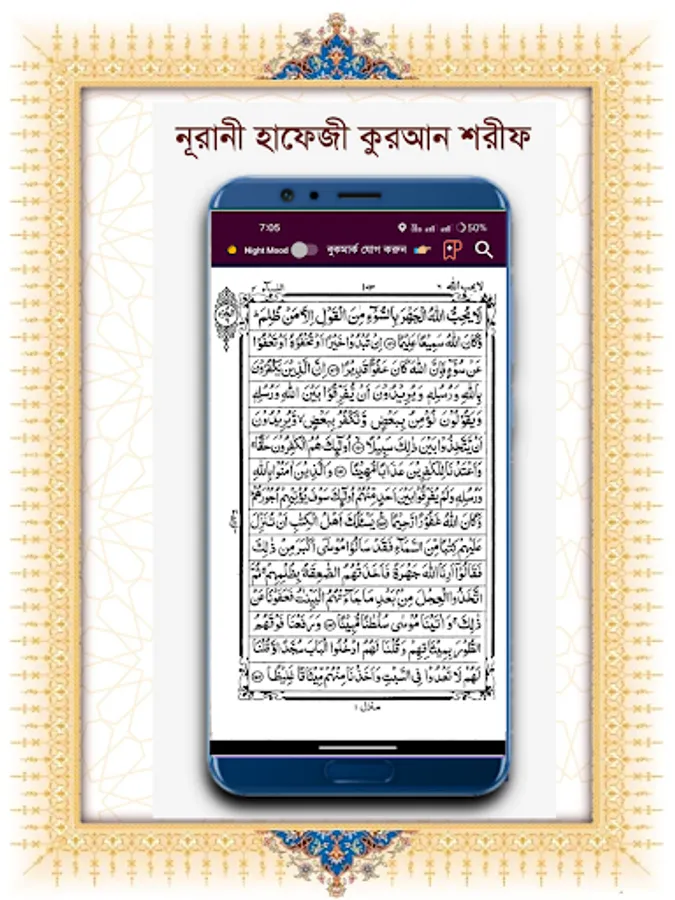 নূরানী হাফেজী কুরআন শরীফ
7:05 50%
Night Mood বুকমার্ক যোগ করুন
لا يحب الله ٦ ١٠٣ النسآء ٤
لَا يُحِبُّ اللهُ الْجَهْرَ بِالسُّوْٓءِ مِنَ الْقَوْلِ اِلَّا مَنْ ظُلِمَ ؕ
وَكَانَ اللهُ سَمِيْعًا عَلِيْمًا ﴿۱۴۸﴾ اِنْ تُبْدُوْا خَيْرًا اَوْ تُخْفُوْهُ اَوْ تَعْفُوْا
عَنْ سُوْٓءٍ فَاِنَّ اللهَ كَانَ عَفُوًّا قَدِيْرًا ﴿۱۴۹﴾ اِنَّ الَّذِيْنَ يَكْفُرُوْنَ
بِاللهِ وَرُسُلِهٖ وَيُرِيْدُوْنَ اَنْ يُّفَرِّقُوْا بَيْنَ اللهِ وَرُسُلِهٖ
وَيَقُوْلُوْنَ نُؤْمِنُ بِبَعْضٍ وَّنَكْفُرُ بِبَعْضٍ ۙ وَّيُرِيْدُوْنَ
اَنْ يَّتَّخِذُوْا بَيْنَ ذٰلِكَ سَبِيْلًا ﴿۱۵۰﴾ اُولٰٓئِكَ هُمُ الْكٰفِرُوْنَ حَقًّا ۚ
وَاَعْتَدْنَا لِلْكٰفِرِيْنَ عَذَابًا مُّهِيْنًا ﴿۱۵۱﴾ وَالَّذِيْنَ اٰمَنُوْا بِاللهِ
وَرُسُلِهٖ وَلَمْ يُفَرِّقُوْا بَيْنَ اَحَدٍ مِّنْهُمْ اُولٰٓئِكَ سَوْفَ يُؤْتِيْهِمْ اُجُوْرَهُمْ ؕ
وَكَانَ اللهُ غَفُوْرًا رَّحِيْمًا ﴿۱۵۲﴾ يَسْـَٔلُكَ اَهْلُ الْكِتٰبِ اَنْ تُنَزِّلَ
عَلَيْهِمْ كِتٰبًا مِّنَ السَّمَآءِ فَقَدْ سَاَلُوْا مُوْسٰٓى اَكْبَرَ مِنْ ذٰلِكَ
فَقَالُوْٓا اَرِنَا اللهَ جَهْرَةً فَاَخَذَتْهُمُ الصّٰعِقَةُ بِظُلْمِهِمْ ۚ ثُمَّ
اتَّخَذُوا الْعِجْلَ مِنْۢ بَعْدِ مَا جَآءَتْهُمُ الْبَيِّنٰتُ فَعَفَوْنَا عَنْ
ذٰلِكَ ۚ وَاٰتَيْنَا مُوْسٰى سُلْطٰنًا مُّبِيْنًا ﴿۱۵۳﴾ وَرَفَعْنَا فَوْقَهُمُ
الطُّوْرَ بِمِيْثَاقِهِمْ وَقُلْنَا لَهُمُ ادْخُلُوا الْبَابَ سُجَّدًا وَّقُلْنَا
لَهُمْ لَا تَعْدُوْا فِى السَّبْتِ وَاَخَذْنَا مِنْهُمْ مِّيْثَاقًا غَلِيْظًا ﴿۱۵۴﴾
منزل ١